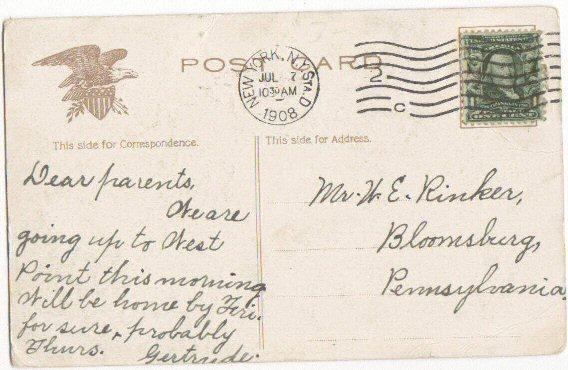 POST CARD
NEW YORK, N.Y. STA. D
JUL 7
10 30 AM
1908
2
C
This side for Correspondence.
This side for Address.
Dear parents,
We are
going up to West
Point this morning
Will be home by Fri.
for sure, probably
Thurs.
Gertrude.
Mr. W. E. Rinker,
Bloomsburg,
Pennsylvania.
ONE CENT